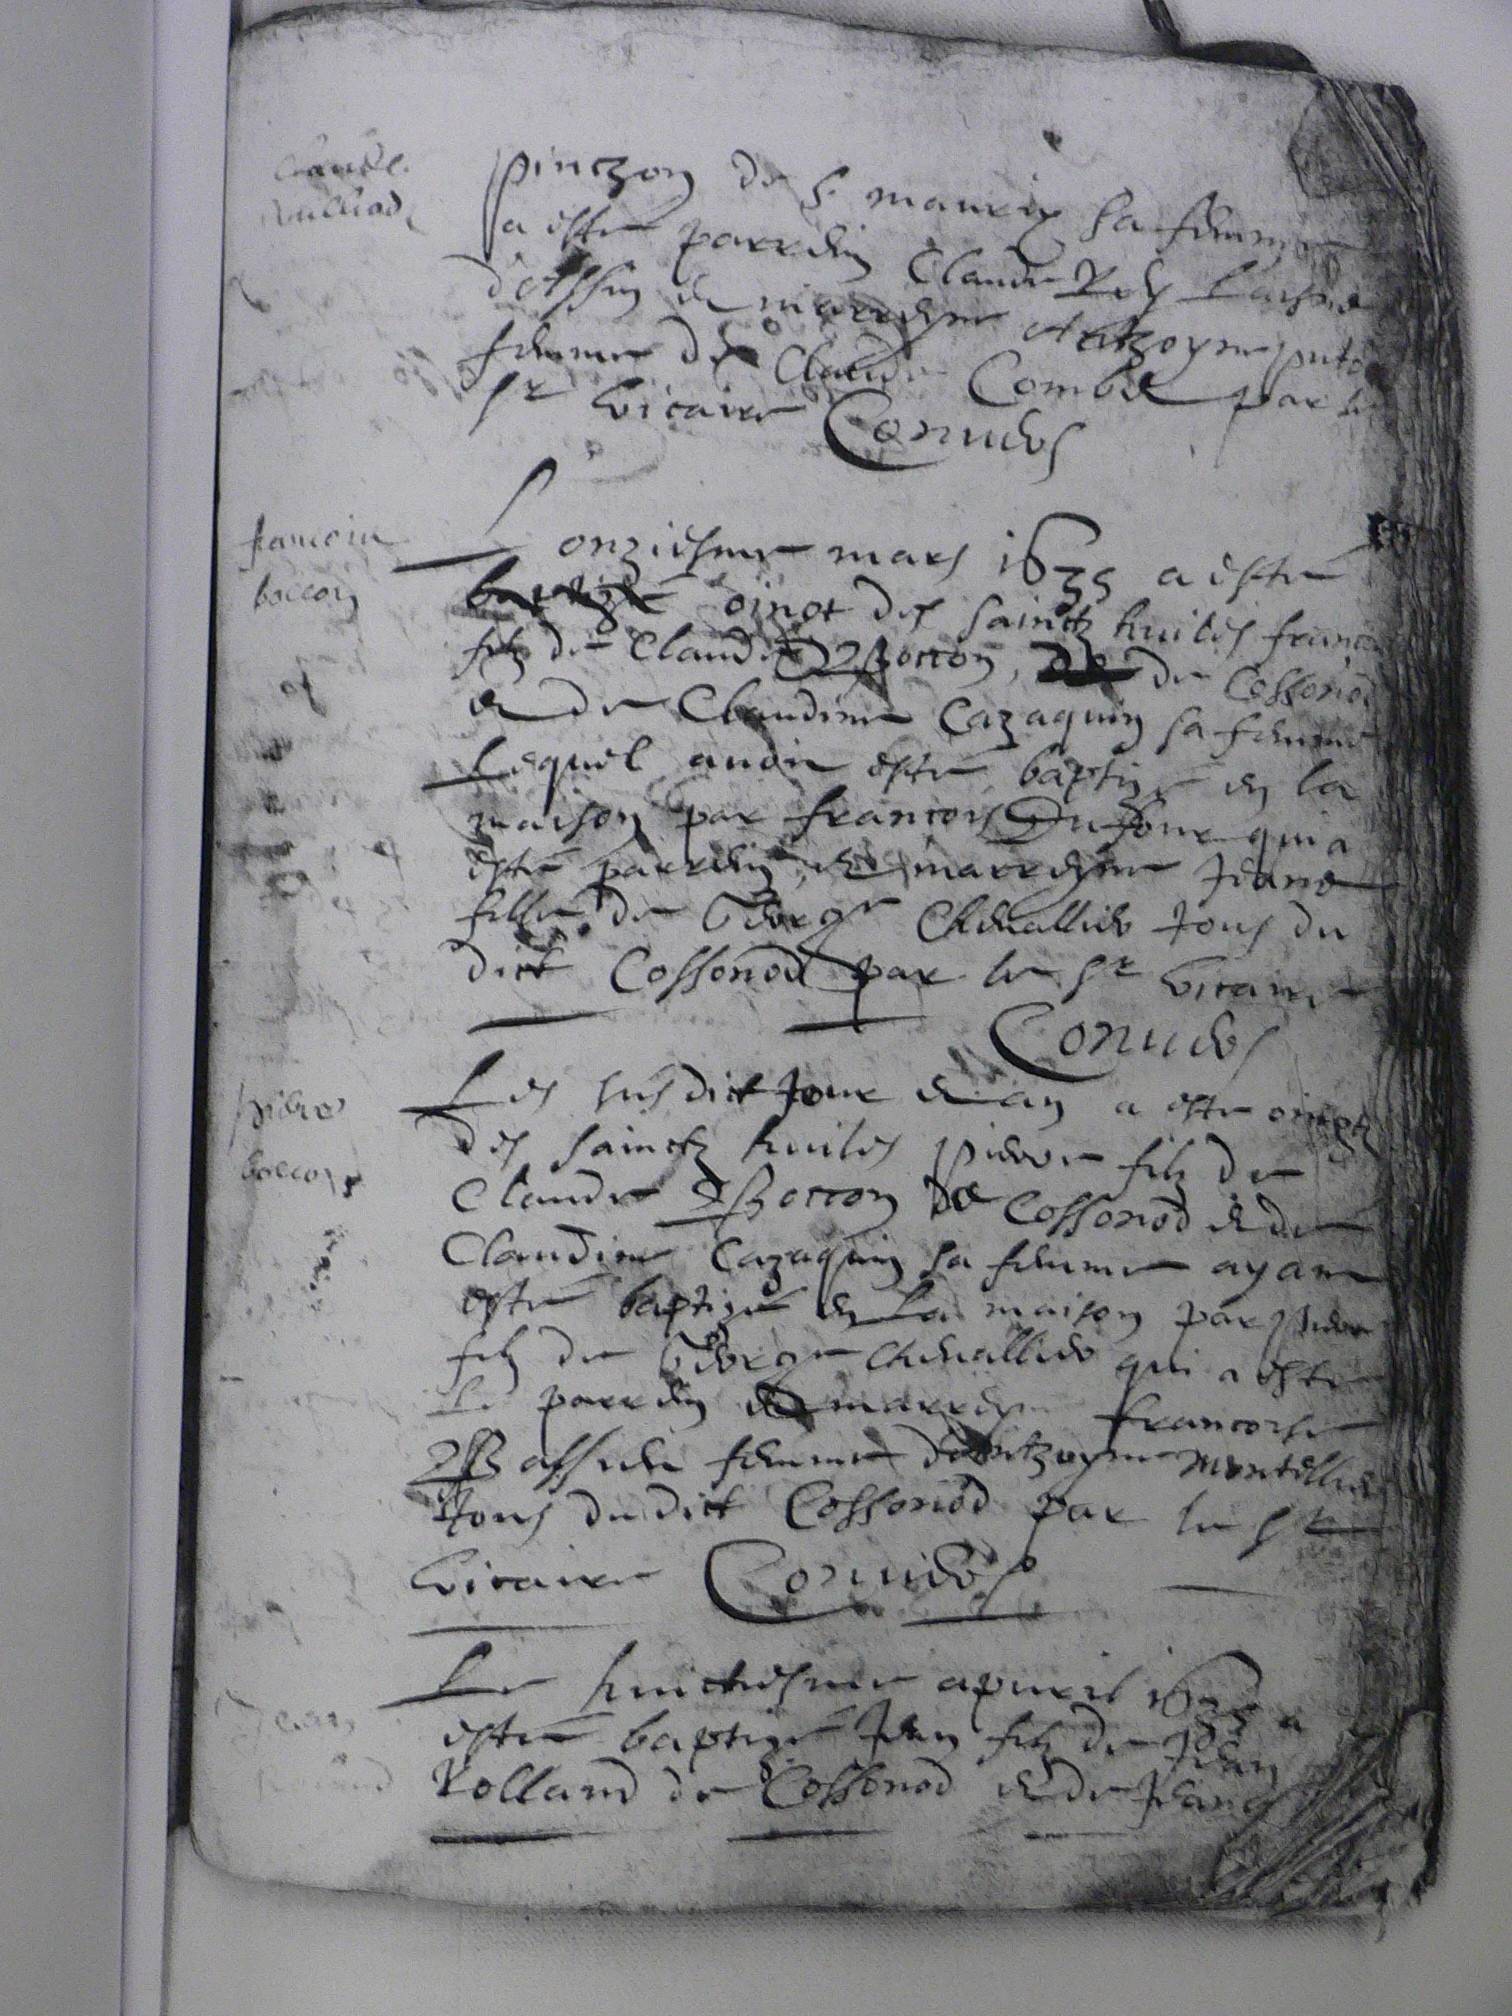 Claude
pinczon de S. mauris sa femme
a esté parrein Claude Rey
femme de Claude Combet par le
Sr vicaire Conuers
francois
boccon
L onziesme mars 1635 a esté
oinct des sainctz huiles francois
filz de Claude Boccon, de Cossonod
et de Claudine Cazaquin sa femme
Lequel auoit esté baptizé en la
maison par francois Dufour qui a
esté parrein, et marreyne Jeane
fille de George Cheuallier tous du
dict Cossonod par le Sr vicaire
Conuers
pierre
boccon
Les susdict Jour et an a esté oingtz
des sainctz huiles pierre filz de
Claude Boccon de Cossonod et de
Claudine Cazaquin sa femme ayant
esté baptizé en La maison par pierre
filz de George Cheuallier qui a esté
le parrein et marreyne francoise
femme d'Antzoyne montellier
tous dudict Cossonod par le Sr
vicaire Conuers
Jean
Rolland
Le huictiesme apuril 1635 a
esté baptizé Jean filz de Jean
Rolland de Cossonod et de Jeane